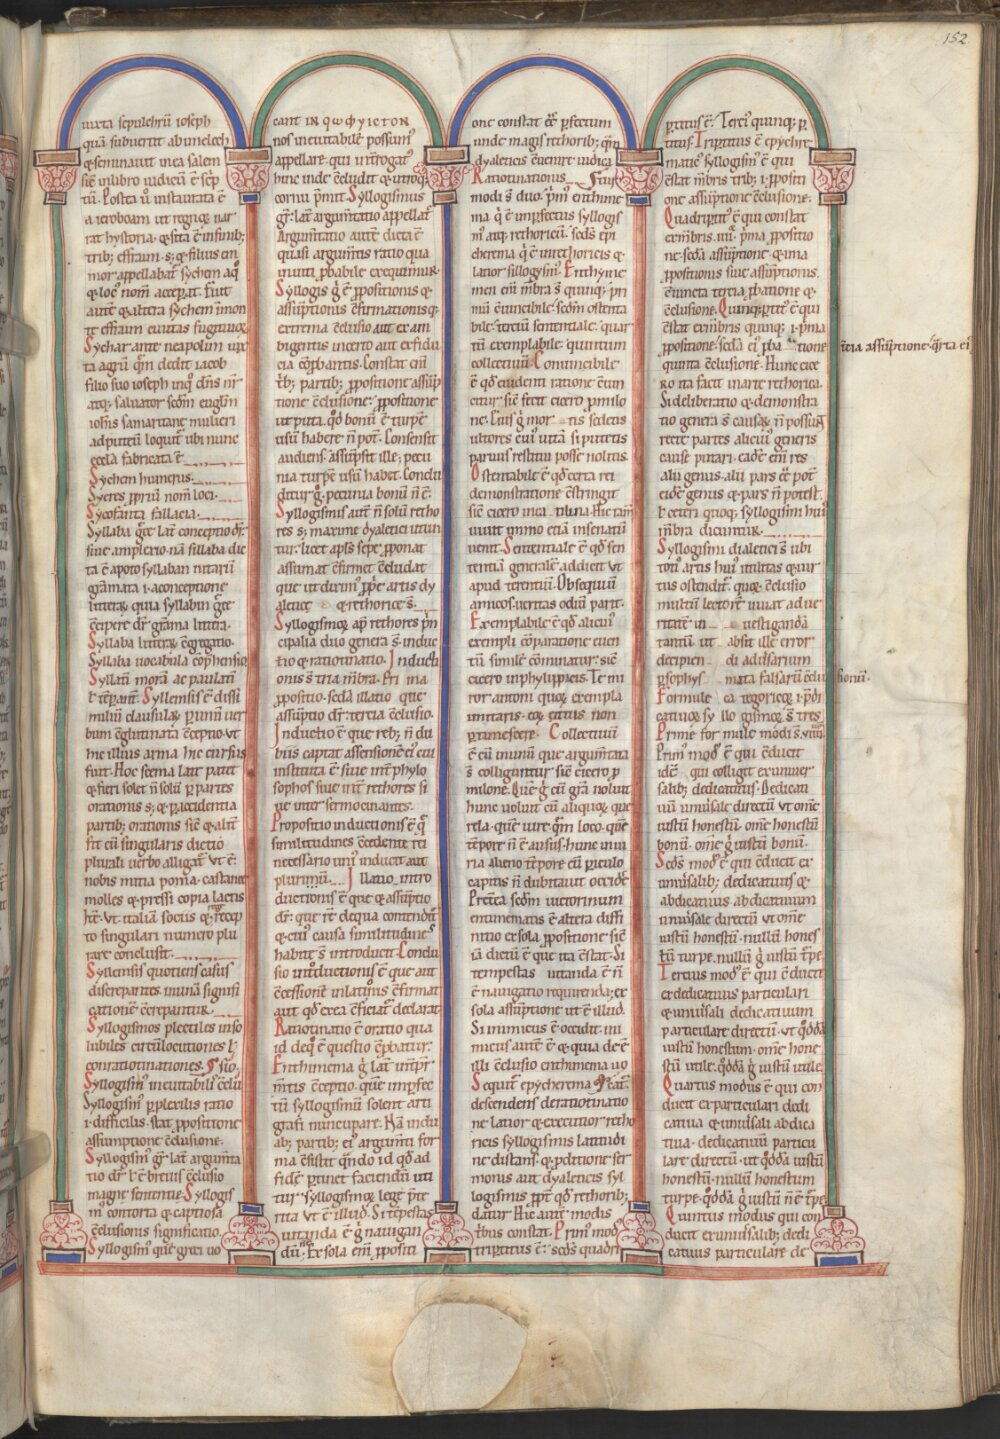 152
iuxta sepulchrū ioseph
quā subuertit abimelech
& seminauit in ea salem
sic̄ in libro iudicū ē scrip
tū. Postea ū instaurata ē
a ieroboam ut regnoꝝ nar
rat hystoria. & sita ē in finib;
trib; effraim. s; & filius em
mor appellabat̄ sychem a q̊
& loc᾽ nom̄ acceperat. Fuit
aut̄ & altera sychem in mon
te effraim ciuitas fugitiuoꝝ
Sychar ante neapolim iux
ta agrū q̄m dedit iacob
filio suo ioseph in q̊ dn̄s nr̄
atq; saluator scd̄m eug̃lm
ioh̄is samaritane mulieri
ad puteū loquit̄ ubi nunc
ecc̄la fabricata ē
Sychem humerus.
Syeres p̱priū nom̄ loci.
Sycofanta fallacia.
Syllaba grece lat̄ conceptio dr̄.
siue amplexio. nā sillaba dic
ta ē apo to syllaban
grāmata. i. a conceptione
litterarꝝ. quia syllabin grece
c̄cipere dr̄ grāma littera.
Syllaba litterarꝝ c̄gregatio.
Syllaba uocabula cōp̱hensio
Syllatī morā ac paulatī
ł tēperant. Syllensis ē dissi
miliū clausularꝝ per unū uer
bum c̄glutinata c̄ceptio. ut
hic illius arma hic currus
fuit. Hoc scema late patet
& fieri solet n̄ solū per partes
orationis s; & per accidentia
partib; orationis sic̄ & alit̄
fit cū singularis dictio
plurali uerbo alligat̄. Ut ē.
nobis mitia poma. castaneę
molles & pressi copia lactis
hęc. Ut italiā socius
to singulari numero plu
rare conclusit.
Syllensis quotiens casus
discrepantes. in unā signifi
cationē c̄crepantur.
Syllogismos plectiles inso
lubiles circūlocutiones ł
conratiotinationes.
Syllogism᾽ ineuitabilis c̄clu
Syllogism᾽ perplexilis ratio
i. difficilis. stat p̱positione
assumptione c̄clusione.
Syllogism᾽ gr̄. lat̄ argum̄ta
tio dr̄. ł ē breuis c̄clusio
magne sententie. Syllogis
m᾽ contorta & captiosa
c̄clusionis significatio.
Syllogism᾽ quē greci uo
cant
nos ineuitabilē possum᾽
appellare. qui int̄rogat᾽
hinc inde c̄cludit & utroq;
cornu p̱mit. Syllogismus
gr̄. lat̄ argum̄tatio appellat̄
Argum̄tatio aut̄ dicta ē
quasi argum̄ti ratio qua
inuēti p̱babile exequimur.
Syllogis g̊ ē p̱positionis &
assūptionis c̄firmationisq;
extrema c̄clusio aut ex am
bigentis incerto aut ex fidu
cia cōprobantis. Constat eni
trib; partib; p̱positione assūp
tione c̄clusione. p̱positione
ut puta. qd̄ bonū ē turpē
usū habere n̄ pot̄. Consensit
audiens. assūpsit ille; pecu
nia turpē usū habet. Conclu
ditur g̊. pecunia bonū n̄ ē.
Syllogismis aut̄ n̄ solū retho
res s; maxime dyaletici utun
tur. licet apl̄s sepe p̱ponat
assumat c̄firmet c̄cludat
que ut dixim᾽ p̱prie artis dy
alectice & rethorice s̄.
Syllogismorꝝ ap̱ rethores p̱n
cipalia duo genera s̄ induc
tio & ratiotinatio. Inducti
onis s̄ tria mēbra. Prima
p̱positio. sēda illatio que
assūptio dr̄. tercia c̄clusio.
Inductio ē que reb; n̄ du
biis captat assensionē ei᾽ cui
instituta ē siue int̄ phylo
sophos siue int̄ rethores si
ue inter sermocinantes.
Propositio inductionis ē q̄
similitudines c̄cedente rei
necessario uni᾽ inducit aut
plurimū. Illatio intro
ductionis ē que & assūptio
dr̄. que rē de qua contendit̄
& cui᾽ causa similitudines
habitę s̄ introducit. Conclu
sio introductionis ē que aut
c̄cessionē inlationis c̄firmat
aut qd̄ ex ea c̄ficiat̄ declarat.
Ratiotinatio ē oratio qua
id de q̊ ē questio cōprobatur.
Enthimema g̊ lat̄ int̄p̱r
m̄tis c̄ceptio. quē imp̱fec
tū syllogismū solent arti
grafi nuncupare. Nā in du
ab; partib; ei᾽ argum̄ti for
ma c̄sistit q̄ndo id qd̄ ad
fidē p̱tinet faciendū uti
tur syllogismorꝝ lege p̱te
rita. Ut ē illud. Si tēpestas
uitanda ē g̊ n̄ nauigan
dū. Ex sola eni p̱positi
one constat ēē p̱fectum
unde magis rethorib; q̄m
dyaleticis c̄uenire iudica
Ratiotinationis
modi s̄ duo. p̱m᾽ enthime
ma q̄ ē inp̱fectus syllogis
m᾽ atq; rethoricus. sēds epi
cherema q̄ ē in rethoricis &
latior sillogism᾽. Enthyme
men eni mēbra s̄ quinq; p̱i
mū c̄uincibile. scd̄m ostenta
bile. terciū sententiale. quar
tū exemplabile. quintum
collectiuū. Conuincibile
ē qd̄ euidenti ratione c̄uin
citur sic̄ fecit cicero p̱ milo
ne. Eius g̊ mortis sedetis
ultores cui᾽ uitā si putetis
per uos restitui posse nolitis.
Ostentabile ē qd̄ certa rei
demonstratione c̄stringit
sic̄ cicero in catilina. Hic tam̄
uiuit immo etiā in senatū
uenit. Sententiale ē qd̄ sen
tentiā generale addicit. Ut
apud terentiū. Obsequium
amicos ueritas odiū parit.
Exemplabile ē qd̄ alicui᾽
exempli cōparatione euen
tū similē cōminatur. sic̄
cicero in phylippicis. Te mi
ror antoni quorꝝ exempla
imitaris. eorꝝ exitus non
pertimescere. Collectiuū
ē cū in unū que argum̄tata
s̄ colligunt̄ur sic̄ cicero p̱
milone. Quē g̊ cū gr̄a noluit
hunc uoluit cū aliquorꝝ que
rela. quē iure q̄m loco. quē
tēpore n̄ ē ausus. hunc iniu
ria alieno tēpore cū periculo
capitis n̄ dubitauit occidere.
Preterea scd̄m uictorinum
entimematis ē altera diffi
nitio ex sola p̱positione sic̄
iā dictū ē que ita c̄stat. Si
tempestas uitanda ē n̄
ē nauigatio requirenda; ex
sola assūptione ut ē illud.
Si inimicus ē occidit. ini
micus aut̄ ē & quia deest
illi c̄clusio enthimema uo
Sequit̄ epycherema
descendens de ratiotinatio
ne latior & executior retho
ricis syllogismis latitudi
ne distans & p̱ductione ser
monis aut dyaleticis syl
logismis propter qd̄ rethorib;
datur. Hic aut̄ modis
trib; constat. Prim᾽ modus
tripertitus ē. sēds quadri
pertitus ē. Terci᾽ quinq; p
titus. Tripertitus ē epycheri
matic᾽ syllogism᾽ ē qui
c̄stat mēbris trib; i. p̱positi
one assūptione c̄clusione.
Quadripertit᾽ ē qui constat
ex mēbris .iiii. p̱ma p̱positio
ne. sēda assūptione & una
p̱positionis siue assūptionis.
c̄iuncta tercia p̱batione &
c̄clusione. Quinq;pertit᾽ ē qui
c̄stat ex mēbris quinq; i. p̱ma
p̱positione. sēda ei᾽ p̱batione
t̄cia assūptione. q̄rta ei᾽
quinta c̄clusione. Hunc cice
ro ita facit in arte rethorica.
Si deliberatio & demonstra
tio genera s̄ causarꝝ. n̄ possunt
recte partes alicui᾽ generis
cause putari. eadē eni res
alii genus. alii pars ēē pot̄.
eidē genus & pars n̄ potest.
ł ceteri quoq; syllogismi hui᾽
mēbra dicuntur.
Syllogismi dialetici s̄ ubi
toti᾽ artis hui᾽ utilitas & uir
tus ostendit̄. quorꝝ c̄clusio
multū lectorē iuuat ad ue
ritatē in uestigandā
tantū ut absit ille error
decipiendi aduersarium
per sophysmata falsarū c̄clu
sionū.
Formule categoricorꝝ i. p̱di
catiuorꝝ syllogismorꝝ s̄ tres.
Prime formule modi s̄ .viiii.
Prim᾽ mod᾽ ē qui c̄ducit
idē qui colligit ex uniuer
salib; dedicatiuis. Dedicati
uū uniuersale directū ut om̄e
iustū honestū. om̄e honestū
bonū. om̄e g̊ iustū bonū.
Sēds mod᾽ ē qui c̄ducit ex
uniuersalib; dedicatiuis &
abdicatiuis abdicatiuum
uniuersale directū. Ut om̄e
iustū honestū. nullū hones
tū turpe. nullū g̊ iustū turpe.
Tercius mod᾽ ē qui c̄ducit
ex dedicatiuis particulari
& uniuersali dedicatiuum
particulare directū. ut qd̄dā
iustū honestum. om̄e hone
stū utile. qd̄dā g̊ iustū utile
Quartus modus ē qui con
ducit ex particulari dedi
catiua & uniuersali abdica
tiua. dedicatiuū particu
lare directū. ut qd̄dā iustū
honestū. nullū honestum
turpe. qd̄dā g̊ iustū n̄ ē turpe
Quintus modus qui con
ducit ex uniuersalib; dedi
catiuis particulare de